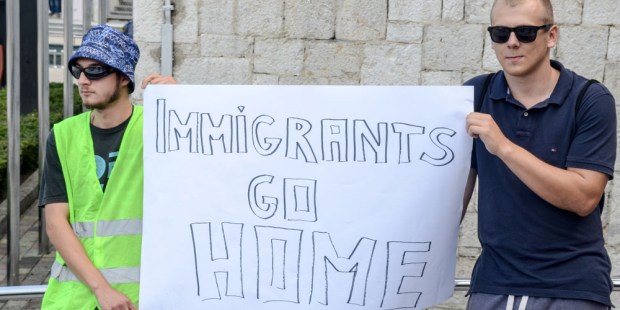 IMMIGRANTS
GO
HOME